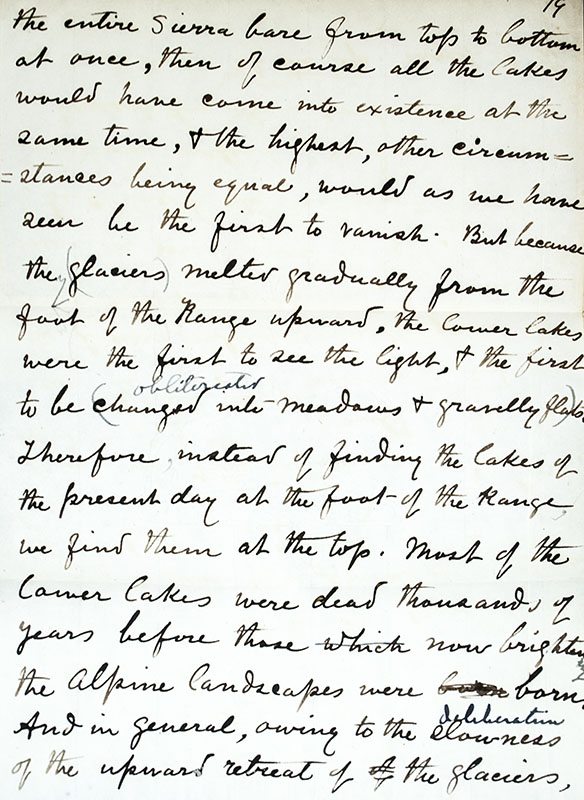 19
the entire Sierra bare from top to bottom
at once, then of course all the lakes
would have come into existence at the
same time, & the highest, other circum=
=stances being equal, would as we have
seen be the first to vanish. But because
the (glaciers) melted gradually from the
foot of the Range upward, the lower lakes
were the first to see the light, & the first
obliterated
to be (changed into meadows & gravelly flats)
Therefore, instead of finding the lakes of
the present day at the foot of the Range,
we find them at the top. Most of the
lower lakes were dead thousands of
years before those which now brighten
the Alpine landscapes were born.
deliberation
And in general, owing to the slowness
of the upward retreat of the glaciers,